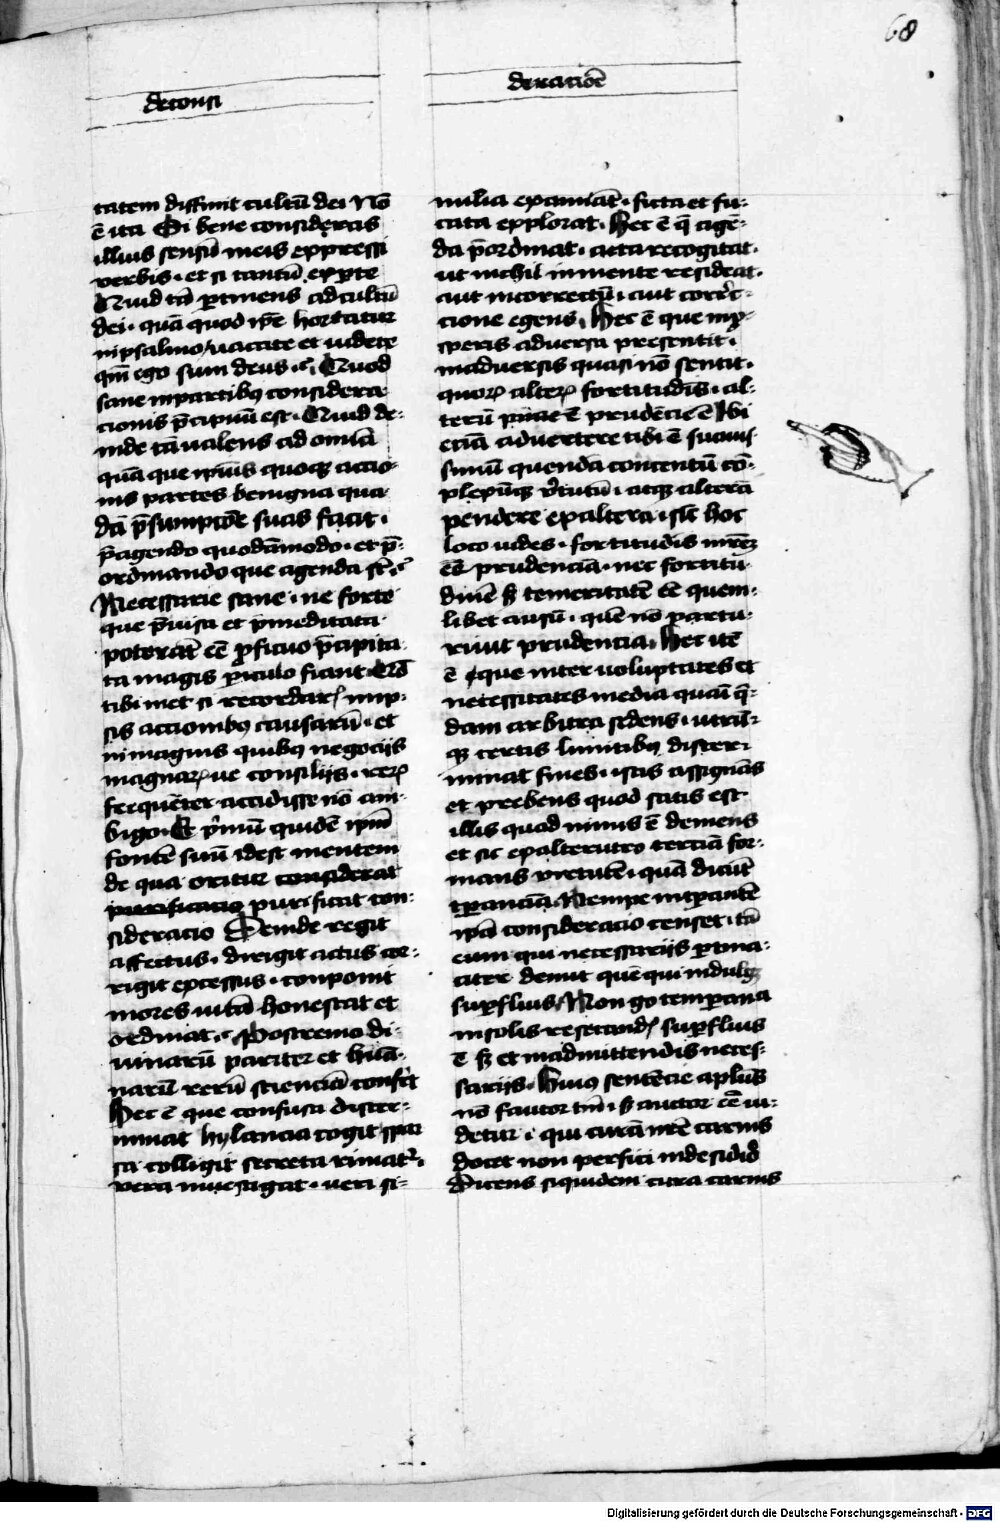 68
deconsi
deracioē
tatem diffinit cultū dei Nō
ē ita Si bene consideras
illius sensū meis expressi
verbis · et si tantū expte
Quid tā ꝑtinens ad cultū
dei · quā quod ip̄e hortatur
inpsalmo / vacate et videte
qm̄ ego sum deus · Quod
sane inpartibꝰ considera
cionis p̄cipuū est · Quid de-
inde tā valens ad omnia
quā que ip̄ius quoqꝫ accio
nis partes benigna qua
dā p̄sumptōe suas facit ·
p̄agendo quodāmodo · et p̄-
ordinando que agenda st̄
Necessarie sane · ne forte
que p̄uisa et p̄meditata
poterāt eē ꝓficuo p̄cipita
ta magis ꝑiculo fiant ·
tibi met si recordarꝭ inip-
sis accionibꝰ causarū · et
inmagnis quibꝰ negociis
magnarꝝ ue consiliis · rerꝝ
frequēter accidisse nō am-
bigo · Et p̄mū quidē ip̄m
fontē suū idest mentem
de qua oritur considerat
purificatio purificat con-
sideracio Deinde regit
affectus · dirigit actus cor-
rigit excessus · conponit
mores vitā honestat et
ordinat · Postremo di-
uinarū pariter et huā-
narū rerū scienciā confert
Hec ē que confusa discer-
minat hylancia cogit spar
sa colligit secreta rimatꝭ ·
vera inuestigat · veri si-
milia examīat · ficta et fu-
cata explorat · Hec ē q̄ agē-
da p̄ordinat · acta recogitat ·
ut nichil inmente resideat ·
aut incorrectū · aut corrc-
cione egens · Hec ē que inp̄-
speris aduersa presentit ·
inaduersis quasi nō sentit ·
quorꝝ alterꝝ fortitudīs · al-
terū prudēcie ē Ibi
eciā aduertere tibi ē suauis-
simū quendā concentū cō-
plexūqꝫ v̄tutū · atqꝫ alterā
pendere exaltera · sic̄ hoc
loco vides · fortitudīs mr̄eꝫ
eē prudenciā · nec fortitu-
dinē sꝫ temeritatē eē quem-
libet ausū · quē nō partu-
riuit prudencia · Hec itē
ē que inter voluptates et
necessitates media quasi q̄-
dam arbitra sedens · utrīs-
qꝫ certis limitibꝰ discer-
minat fines · istas assignās
et prebens quod satis est
illis quod nimis ē demens
et sic exalterutro terciā for-
mans virtutē · quā dicūt
tꝑanciā · Nempe intꝑantē
ip̄a consideracio censet · tā
eum qui necessariis ꝑtina-
citer demit quē qui indulgꝫ
suꝑfluis · Non gͦ temꝑancia
insolis resecandꝭ suꝑfluis
ē sꝫ et inadmittendis neces-
sariis · Huiꝰ sentēcie aplūs
nō fautor tm̄ · sꝫ auctor eē ui-
detur · qui curā nr̄e carnis
docet non perfici indesid'
Dicens siquidem cura carnis
Digitalisierung gefördert durch die Deutsche Forschungsgemeinschaft - DFG